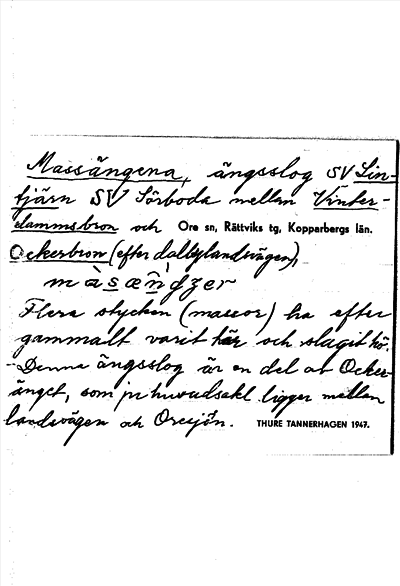 Massängena, ängsslog SV Lin-
tjärn SV Sörboda mellan Vinter-
dammsbron och Ore sn, Rättviks tg, Kopparbergs län.
Ockerbron (efter dalbylandsvägen),
Flera stycken (massor) ha efter
gammalt varit här och slagit hö.
Denna ängsslog är en del av Ocker-
änget, som i huvudsakl. ligger mellan
landsvägen och Oresjön. THURE TANNERHAGEN 1947.